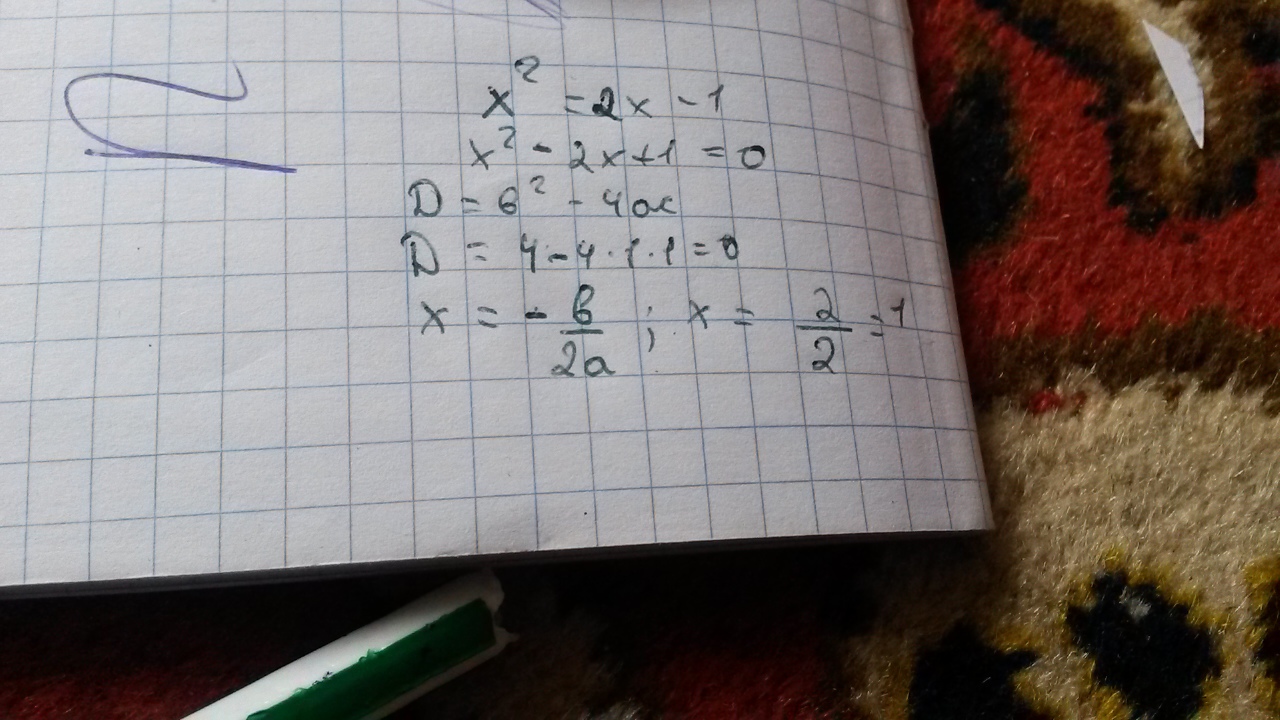 x² = 2x - 1
x² - 2x + 1 = 0
D = в² - 4ac
D = 4 - 4 · 1 · 1 = 0
x = - в/2a ; x = 2/2 = 1